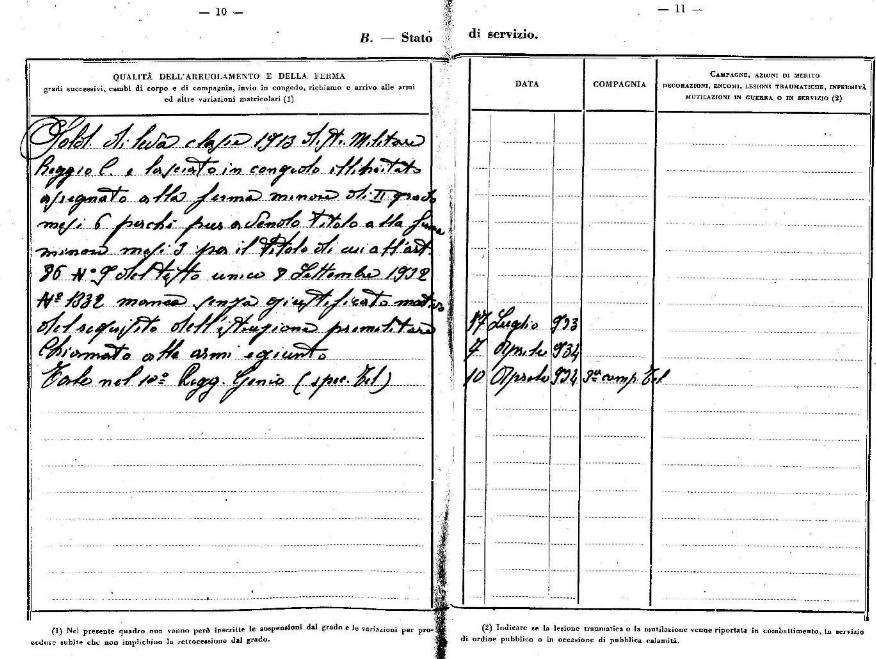 — 10 —
— 11 —
B. — Stato di servizio.
QUALITÀ DELL'ARRUOLAMENTO E DELLA FERMA
gradi successivi, cambi di corpo e di compagnia, invio in congedo, richiamo e arrivo alle armi
ed altre variazioni matricolari (1)
DATA
COMPAGNIA
CAMPAGNE, AZIONI DI MERITO
DECORAZIONI, ENCOMI, LESIONI TRAUMATICHE, INFERMITÀ
MUTILAZIONI IN GUERRA O IN SERVIZIO (2)
Sold. di leva classe 1913 Dist. Militare
Reggio C. e lasciato in congedo illimitato
assegnato alla ferma minore di II grado
mesi 6 perchè pur avendo titolo alla ferma
minore mesi 3 per il titolo di cui all'art.
86 N° 9 del testo unico 8 Settembre 1932
N° 1332 manca senza giustificato motivo
del requisito dell'istruzione premilitare 17 Luglio 933
Chiamato alle armi e giunto 7 Aprile 934
Tale nel 10° Regg. Genio (spec. Tel) 10 Aprile 934 3ª comp. Tel
(1) Nel presente quadro non vanno però inscritte le sospensioni dal grado e le variazioni per pro-
cedure subite che non implichino la retrocessione dal grado.
(2) Indicare se la lesione traumatica o la mutilazione venne riportata in combattimento, in servizio
di ordine pubblico o in occasione di pubblica calamità.